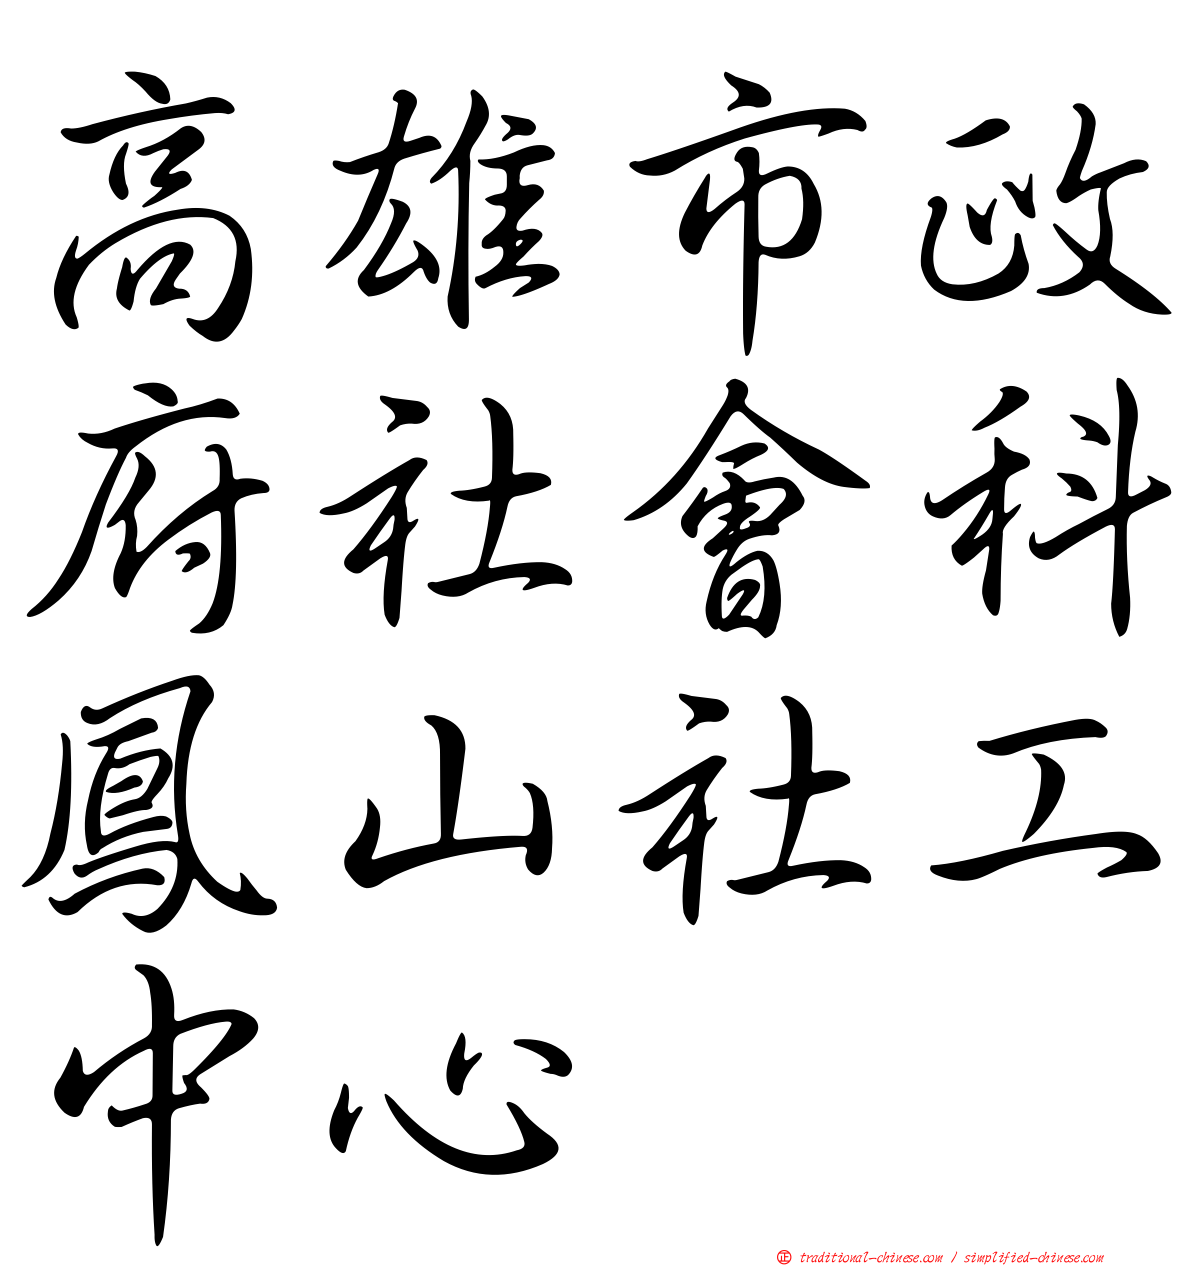 高雄市政
府社會科
鳳山社工
中心
正 traditional-chinese.com / simplified-chinese.com